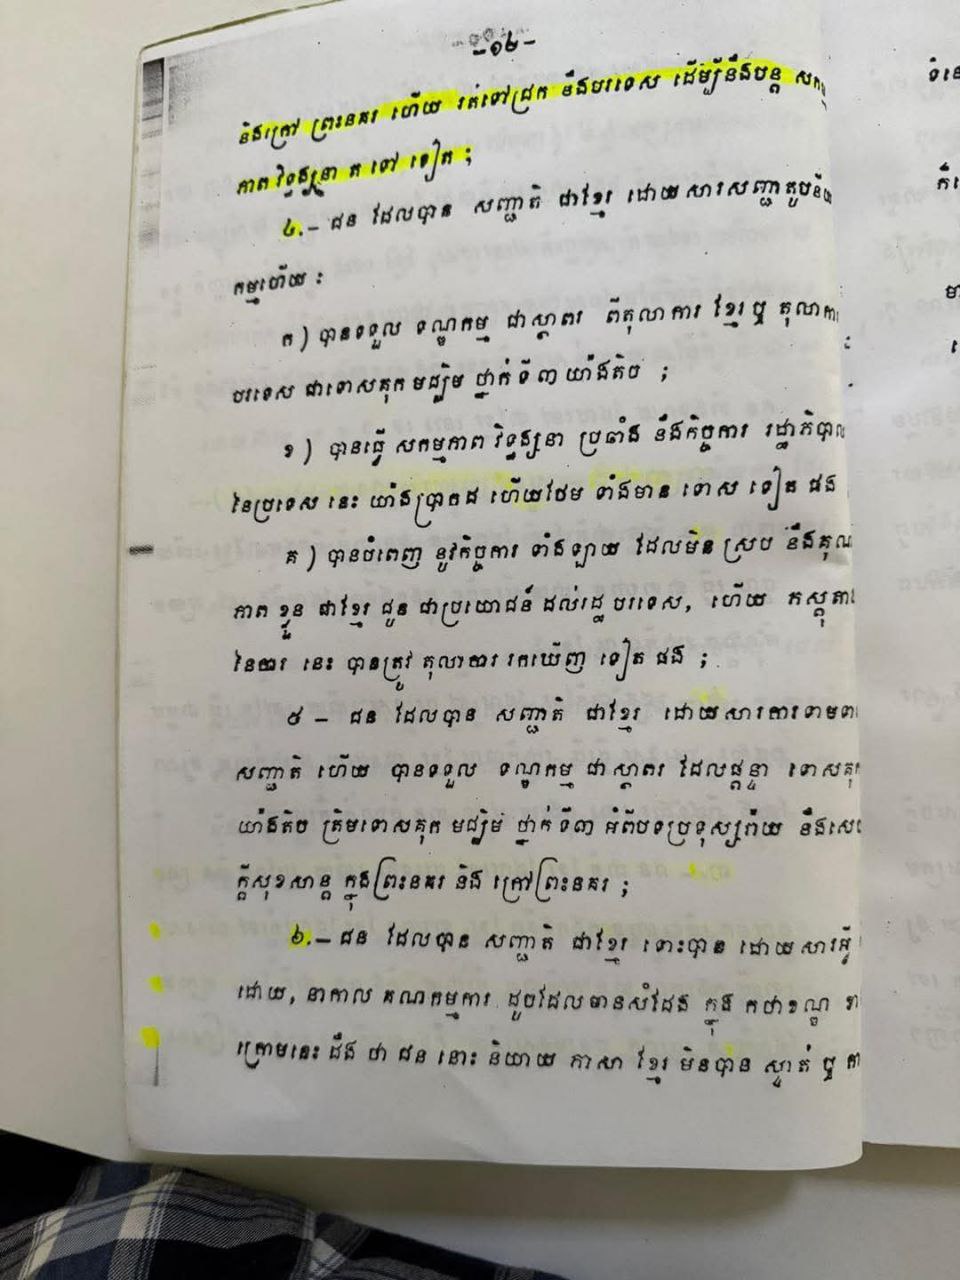 -១៤-
និងក្រៅ ព្រះនគរ ហើយ រត់ទៅជ្រក នឹងបរទេស ដើម្បីនឹងបន្ត សកម្ម
ភាព វិទ្ធង្សនា ត ទៅ ទៀត ;
៤.- ជន ដែលបាន សញ្ជាតិ ជាខ្មែរ ដោយសារសញ្ជាតូបនីយ
កម្មហើយ :
ក ) បានទទួល ទណ្ឌកម្ម ជាស្ថាពរ ពីតុលាការ ខ្មែរឬ តុលាការ
បរទេស ជាទោសគុកមជ្ឈិម ថ្នាក់ទី៣យ៉ាងតិច ;
ខ ) បានធ្វើ សកម្មភាព វិទ្ធង្សនា ប្រឆាំង នឹងកិច្ចការ រដ្ឋាភិបាល
នៃប្រទេស នេះ យ៉ាងប្រាកដ ហើយថែម ទាំងមាន ទោស ទៀត ផង
គ ) បានបំពេញ នូវកិច្ចការ ទាំងឡាយ ដែលមិនស្រប នឹងគុណ
ភាព ខ្លួន ជាខ្មែរ ជូន ជាប្រយោជន៍ ដល់រដ្ឋ បរទេស, ហើយ កស្តុតាង
នៃការ នេះ បានត្រូវ តុលាការ រកឃើញ ទៀត ផង ;
៥ - ជន ដែលបាន សញ្ជាតិ ជាខ្មែរ ដោយសារការទាមទារ
សញ្ជាតិ ហើយ បានទទួល ទណ្ឌកម្ម ជាស្ថាពរ ដែលផ្តន្ទា ទោសគុក
យ៉ាងតិច ត្រឹមទោសគុក មជ្ឈិម ថ្នាក់ទី៣ អំពីបទប្រទុស្សរ៉ាយ នឹងសេច
ក្តីសុខសាន្ត ក្នុងព្រះនគរ និង ក្រៅព្រះនគរ ;
៦.- ជន ដែលបាន សញ្ជាតិ ជាខ្មែរ ទោះបាន ដោយសារអ្វី
ដោយ, នាកាល គណកម្មការ ដូចដែលមានសំដែង ក្នុង កថាខណ្ឌ ខាង
ក្រោមនេះ ដឹង ថា ជន នោះ និយាយ ភាសា ខ្មែរ មិនបាន ស្ទាត់ ឬ